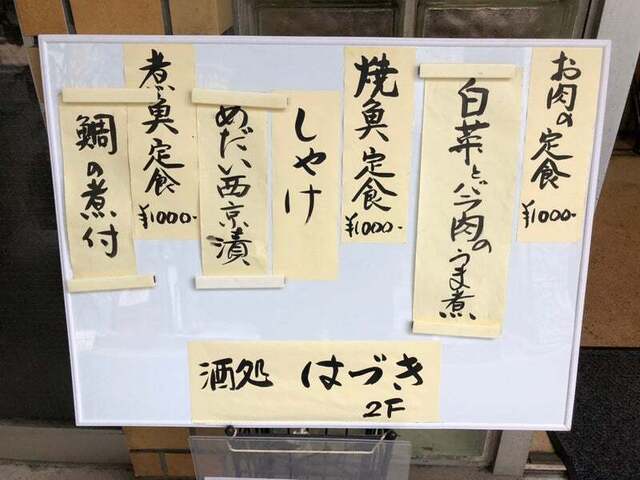 お肉の定食
¥1000-
白菜とバラ肉のうま煮
焼魚定食
¥1000-
しゃけ
めだい西京漬
煮魚定食
¥1000-
鯛の煮付
酒処 はづき
2F